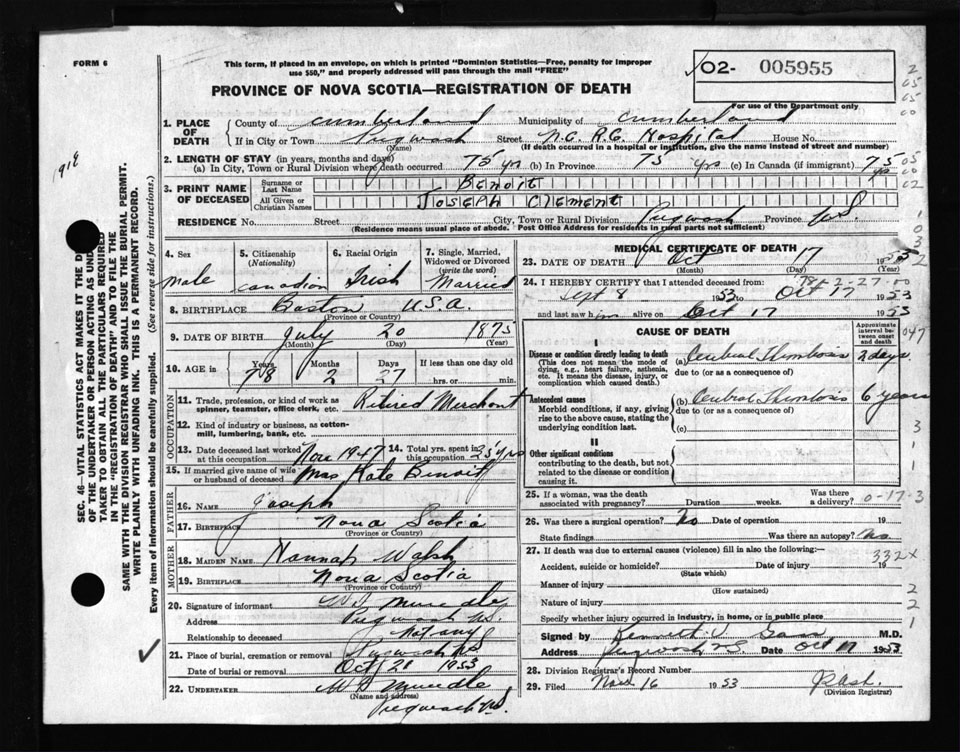 FORM 6
This form, if placed in an envelope, on which is printed "Dominion Statistics—Free, penalty for improper
use $50," and properly addressed will pass through the mail "FREE"
02- 005955
PROVINCE OF NOVA SCOTIA—REGISTRATION OF DEATH
For use of the Department only
1. PLACE OF DEATH
County of Cumberland Municipality of Cumberland
If in City or Town Pugwash Street N.C. R.C. Hospital House No.
(Name) (If death occurred in a hospital or institution, give the name instead of street and number)
2. LENGTH OF STAY (in years, months and days)
(a) In City, Town or Rural Division where death occurred 75 yrs (b) In Province 75 yrs (c) In Canada (if immigrant) 75 yrs
3. PRINT NAME OF DECEASED
Surname or Last Name Benoit
All Given or Christian Names Joseph Clement
RESIDENCE No. Street City, Town or Rural Division Pugwash Province N.S.
(Residence means usual place of abode. Post Office Address for residents in rural parts not sufficient)
4. Sex Male
5. Citizenship (Nationality) Canadian
6. Racial Origin Irish
7. Single, Married, Widowed or Divorced (write the word) Married
8. BIRTHPLACE Boston U.S.A.
(Province or Country)
9. DATE OF BIRTH July 20 1875
(Month) (Day) (Year)
10. AGE in Years 78 Months 2 Days 27 If less than one day old hrs. or min.
OCCUPATION
11. Trade, profession, or kind of work as spinner, teamster, office clerk, etc. Retired Merchant
12. Kind of industry or business, as cotton-mill, lumbering, bank, etc.
13. Date deceased last worked at this occupation Nov 1947 14. Total yrs. spent in this occupation 25 yrs
15. If married give name of wife or husband of deceased Mrs Kate Benoit
FATHER
16. NAME Joseph
17. BIRTHPLACE Nova Scotia
(Province or Country)
MOTHER
18. MAIDEN NAME Hannah Walsh
19. BIRTHPLACE Nova Scotia
(Province or Country)
20. Signature of informant Mundle
Address Pugwash N.S.
Relationship to deceased Not any
21. Place of burial, cremation or removal Pugwash N.S.
Date of burial or removal Oct 21 1953
22. UNDERTAKER Mundle
(Name and address)
Pugwash N.S.
MEDICAL CERTIFICATE OF DEATH
23. DATE OF DEATH Oct 17 1953
(Month) (Day) (Year)
78-2-27-00
24. I HEREBY CERTIFY that I attended deceased from:
Sept 8 1953 to Oct 17 1953
and last saw him alive on Oct 17 1953
CAUSE OF DEATH
Approximate interval between onset and death
I
Disease or condition directly leading to death (a) Cerebral Thrombosis 2 days
(This does not mean the mode of dying, e.g., heart failure, asthenia, etc. It means the disease, injury, or complication which caused death.)
due to (or as a consequence of)
Antecedent causes (b) Cerebral Thrombosis 6 years
Morbid conditions, if any, giving rise to the above cause, stating the underlying condition last.
due to (or as a consequence of)
(c)
II
Other significant conditions
contributing to the death, but not related to the disease or condition causing it.
25. If a woman, was the death associated with pregnancy? Duration weeks. Was there a delivery? 0-17-3
26. Was there a surgical operation? No Date of operation 19
State findings Was there an autopsy? No
27. If death was due to external causes (violence) fill in also the following:—
332X
Accident, suicide or homicide? Date of injury 19
(State which)
Manner of injury
(How sustained)
Nature of injury
Specify whether injury occurred in industry, in home, or in public place
Signed by Kenneth M.D.
Address Pugwash N.S. Date Oct 17 1953
28. Division Registrar's Record Number
29. Filed Nov 16 1953
(Division Registrar)
SEC. 46—VITAL STATISTICS ACT MAKES IT THE
OF THE UNDERTAKER OR PERSON ACTING AS
TAKER TO OBTAIN ALL THE PARTICULARS REQUIRED
IN THE "REGISTRATION OF DEATH" AND TO FILE THE
SAME WITH THE DIVISION REGISTRAR WHO SHALL ISSUE THE BURIAL PERMIT.
WRITE PLAINLY WITH UNFADING INK. THIS IS A PERMANENT RECORD.
Every item of information should be carefully supplied. (See reverse side for instructions.)